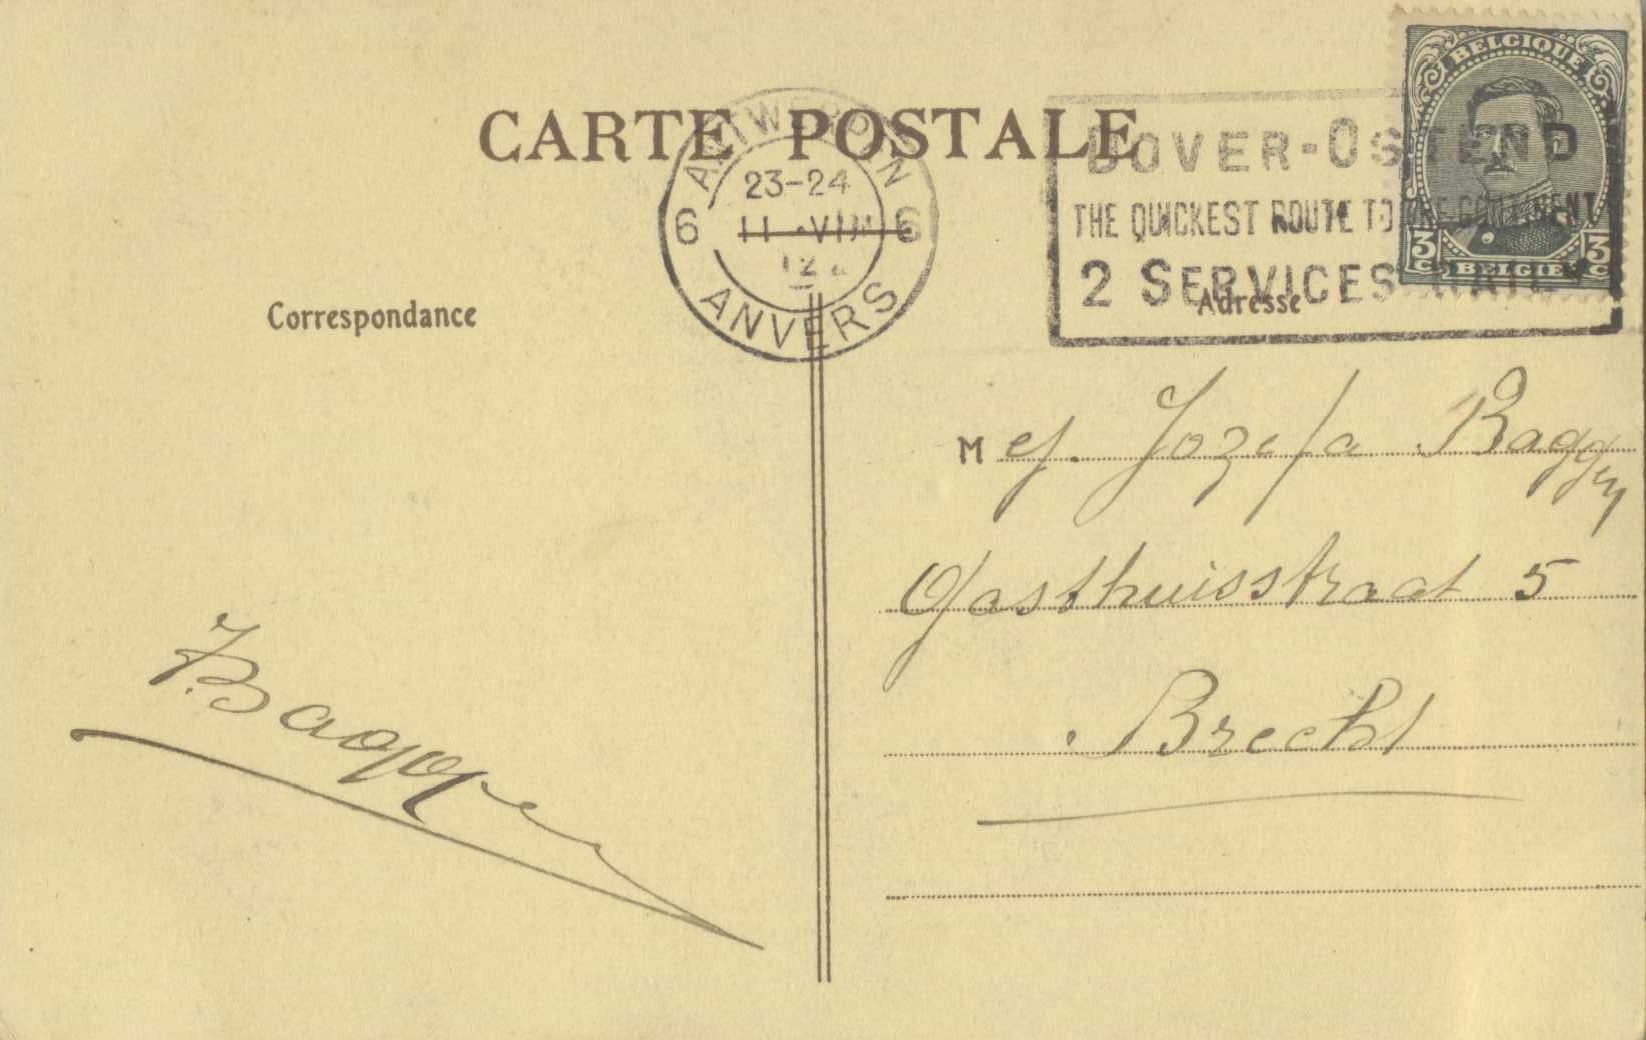 CARTE POSTALE
BELGIQUE
3 C 3 C
BELGIË
ANTWERPEN
6 6
23-24
11 VIII
12
ANVERS
DOVER-OSTEND
THE QUICKEST ROUTE TO THE CONTINENT
2 SERVICES DAILY
Correspondance
Adresse
Mej. Jozefa Baggen
Gasthuisstraat 5
Brecht
Baggen